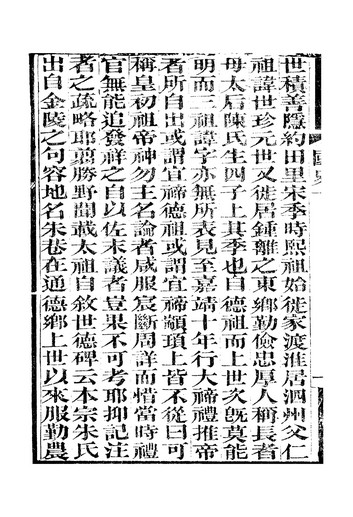 世積善隱約田里宋季時熙祖始徙家渡淮居泗州父仁
祖諱世珍元世又徙居鍾離之東鄉勤儉忠厚人稱長者
母太后陳氏生四子上其季也自德祖而上世次旣莫能
明而三祖諱字亦無所表見至嘉靖十年行大禘禮推帝
者所自出或謂宜禘德祖或謂宜禘顓頊上皆不從曰可
稱皇初祖帝神勿主名論者咸服宸斷周詳而惜當時禮
官無能追發祥之自以佐末議者豈果不可考耶抑記注
者之疏略耶翦勝野聞載太祖自敘世德碑云本宗朱氏
出自金陵之句容地名朱巷在通德鄉上世以來服勤農